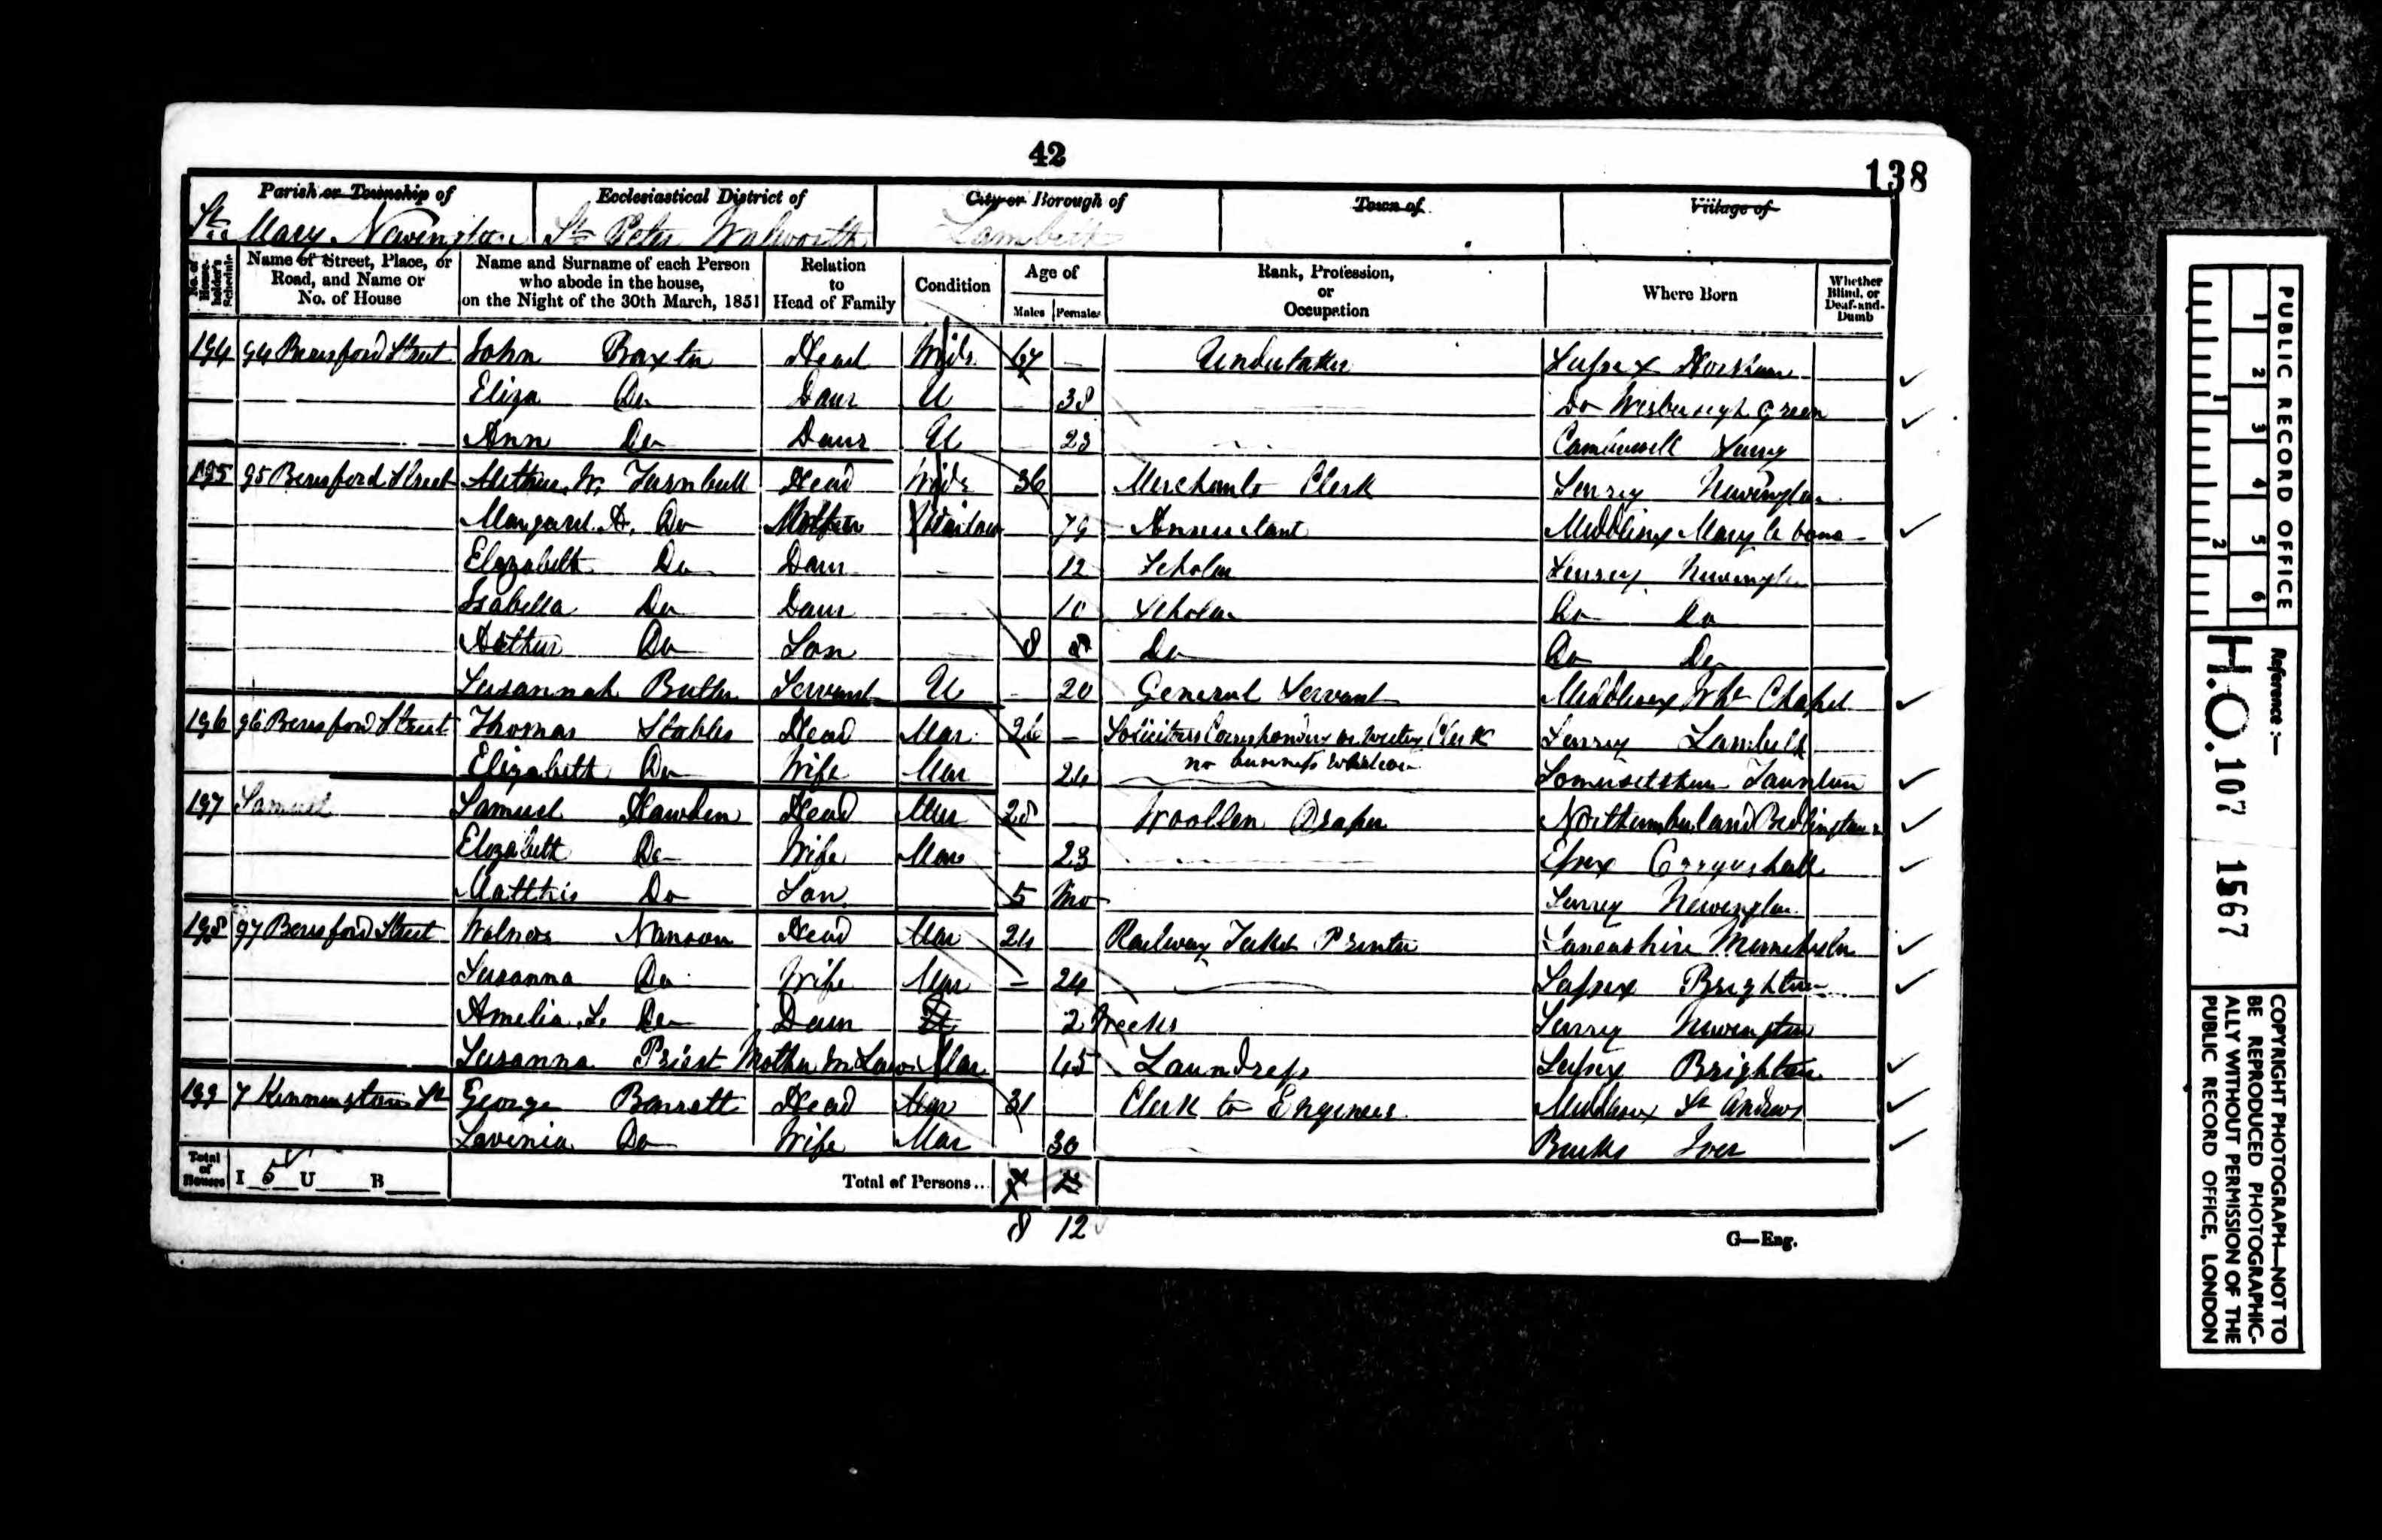 42
138
Parish or Township of Ecclesiastical District of City or Borough of Town of Village of
St Mary Newington St Peter Walworth Lambeth
No. of House-holder's Schedule Name of Street, Place, or Road, and Name or No. of House Name and Surname of each Person who abode in the house, on the Night of the 30th March, 1851 Relation to Head of Family Condition Age of Males Females Rank, Profession, or Occupation Where Born Whether Blind, or Deaf-and-Dumb
194 94 Beresford Street John Baxter Head Widr 67 — Undertaker Sussex Horsham
Eliza Do Daur U 38 Do Wisborough Green
Ann Do Daur U 23 Camberwell Surrey
195 95 Beresford Street W. Turnbull Head Widr 36 Merchants Clerk Surrey Newington
Margaret A. Do Mother Widow 79 Annuitant Middlesex Mary le bone
Elizabeth Do Daur 12 Scholar Surrey Newington
Isabella Do Daur 10 Scholar Do Do
Arthur Do Son 8 Do Do Do
Susannah Butler Servant U 20 General Servant Middlesex Wh Chapel
196 96 Beresford Street Thomas Stables Head Mar 26 — Solicitors Corresponding or Writing Clerk Surrey Lambeth
Elizabeth Do Wife Mar 24 no business whatever Somersetshire Taunton
197 Samuel Samuel Hawden Head Mar 28 Woollen Draper Northumberland Bedlington
Elizabeth Do Wife Mar 23 Essex Coggeshall
Matthis Do Son 5 Mo Surrey Newington
198 97 Beresford Street Nanson Head Mar 24 Railway Ticket Printer Lancashire Manchester
Susanna Do Wife Mar — 24 Sussex Brighton
Amelia S. Do Daur U 2 Weeks Surrey Newington
Susanna Priest Mother in Law Mar 45 Laundress Sussex Brighton
199 7 Kennington St George Barrett Head Mar 31 Clerk to Engineer Middlesex St Andrews
Lavinia Do Wife Mar 30 Bucks Iver
Total of Houses I 5 U B Total of Persons...
8 12
G—Eng.
PUBLIC RECORD OFFICE
1 2 3 4 5 6
1 2
Reference :—
H.O. 107 1567
COPYRIGHT PHOTOGRAPH—NOT TO BE REPRODUCED PHOTOGRAPHIC-
ALLY WITHOUT PERMISSION OF THE
PUBLIC RECORD OFFICE, LONDON